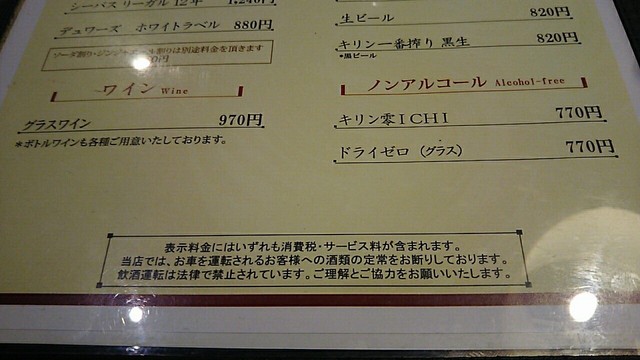 シーバス リーガル 12年 1,240円
デュワーズ ホワイトラベル 880円
ソーダ割り・ジンジャエール割りは別途料金を頂きます
ワイン Wine
グラスワイン 970円
*ボトルワインも各種ご用意いたしております。
生ビール 820円
キリン一番搾り 黒生 820円
*黒ビール
ノンアルコール Alcohol-free
キリン零ICHI 770円
ドライゼロ (グラス) 770円
表示料金にはいずれも消費税・サービス料が含まれます。
当店では、お車を運転されるお客様への酒類の定常をお断りしております。
飲酒運転は法律で禁止されています。ご理解とご協力をお願いいたします。